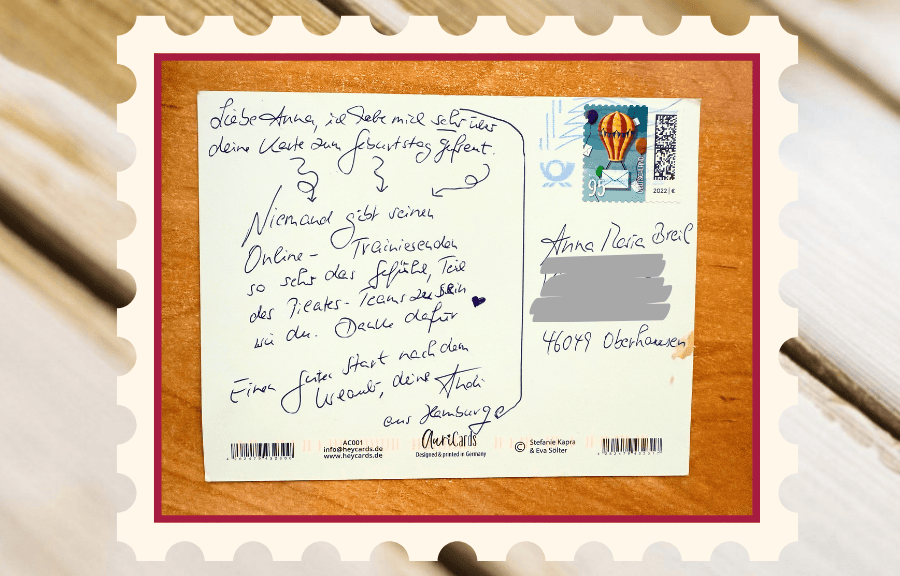 Liebe Anna, ich habe mich sehr über
deine Karte zum Geburtstag gefreut.
Niemand gibt seinen
Online- Trainiesenden
so sehr das Gefühl, Teil
des Pilates-Teams zu sein
wie du. Danke dafür
Einen guten Start nach dem
Urlaub, deine Andi
aus Hamburg
95
2022 | €
Anna Maria Breil
46049 Oberhausen
AC001
info@heycards.de
www.heycards.de
AuriCards
Designed & printed in Germany
© Stefanie Kapra
& Eva Solter